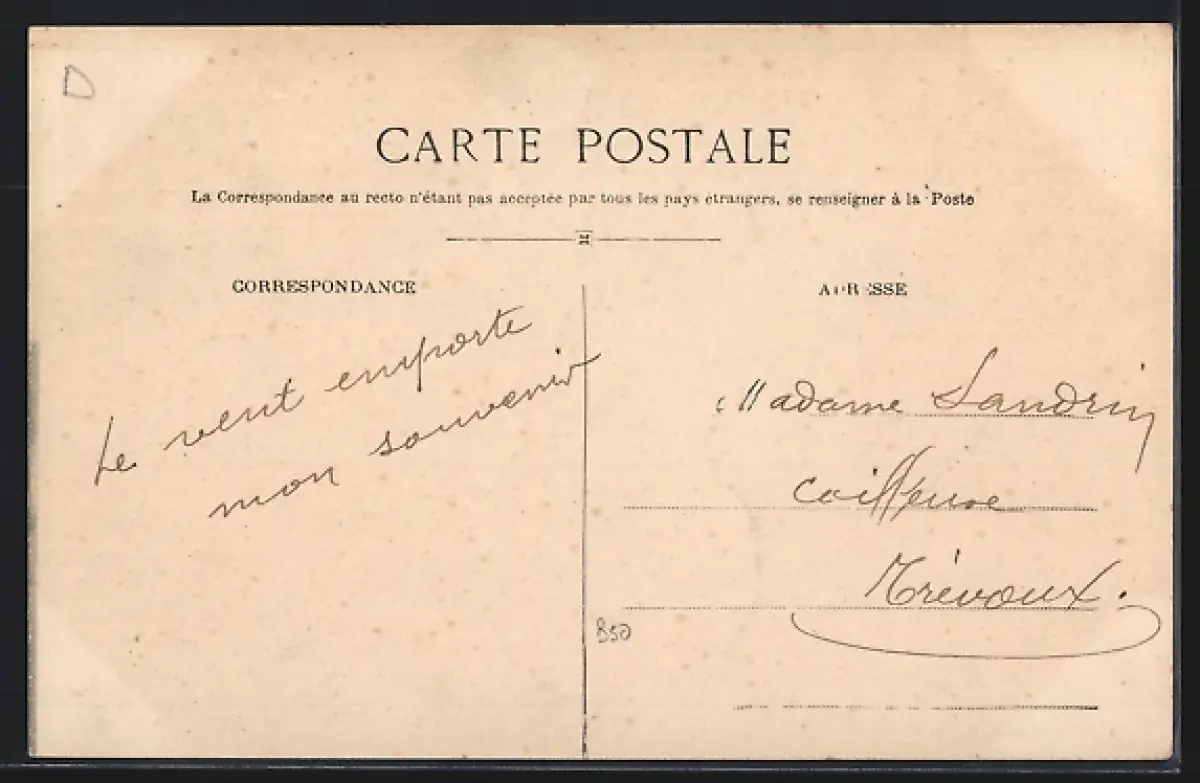 D
CARTE POSTALE
La Correspondance au recto n'étant pas acceptée par tous les pays étrangers, se renseigner à la Poste
CORRESPONDANCE
Le vent emporte
mon souvenir
ADRESSE
Madame Landrin
Coiffeuse
Trévoux.
B50